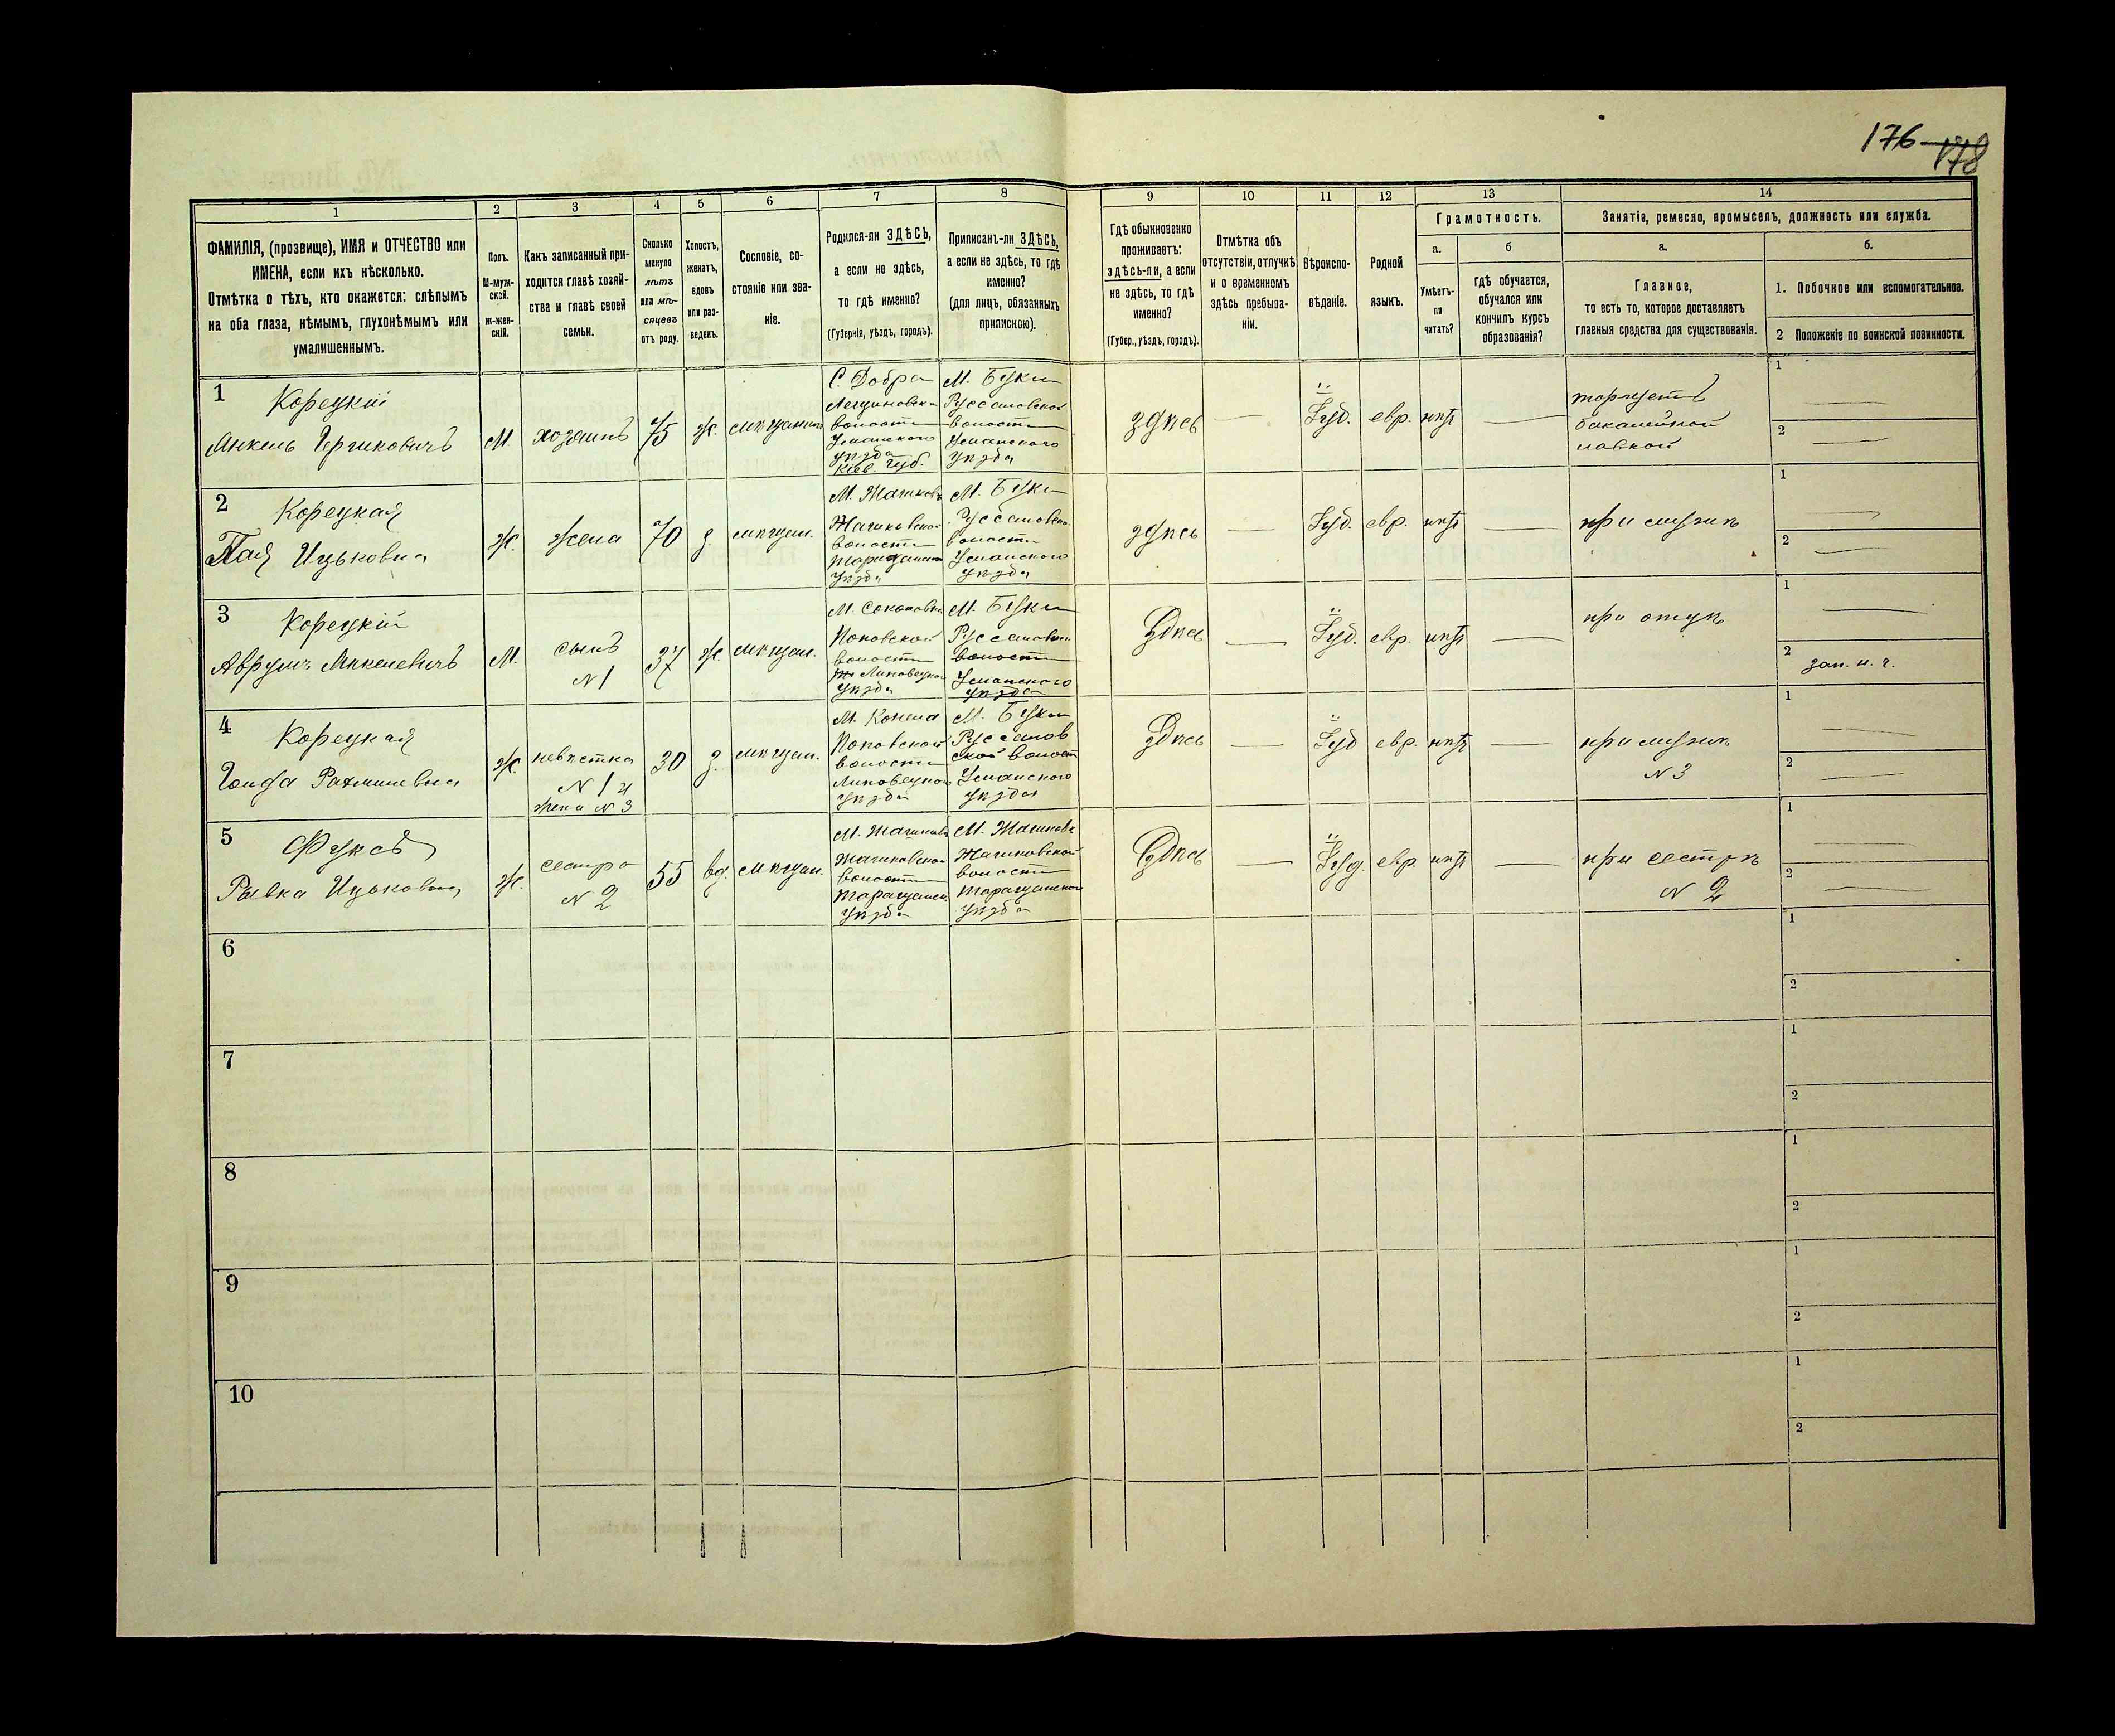 176 178
1 2 3 4 5 6 7 8 9 10 11 12 13 14
ФАМИЛІЯ, (прозвище), ИМЯ и ОТЧЕСТВО или
ИМЕНА, если ихъ нѣсколько.
Отмѣтка о тѣхъ, кто окажется: слѣпымъ
на оба глаза, нѣмымъ, глухонѣмымъ или
умалишеннымъ.
Полъ.
М-муж-
ской.
Ж-жен-
скій.
Какъ записанный при-
ходится главѣ хозяй-
ства и главѣ своей
семьи.
Сколько
минуло
лѣтъ
или мѣ-
сяцевъ
отъ роду.
Холостъ,
женатъ,
вдовъ
или раз-
веденъ.
Сословіе, со-
стояніе или зва-
ніе.
Родился-ли ЗДѢСЬ,
а если не здѣсь,
то гдѣ именно?
(Губернія, уѣздъ, городъ).
Приписанъ-ли ЗДѢСЬ,
а если не здѣсь, то гдѣ
именно?
(для лицъ, обязанныхъ
припискою).
Гдѣ обыкновенно
проживаетъ:
здѣсь-ли, а если
не здѣсь, то гдѣ
именно?
(Губер., уѣздъ, городъ).
Отмѣтка объ
отсутствіи, отлучкѣ
и о временномъ
здѣсь пребыва-
ніи.
Вѣроиспо-
вѣданіе.
Родной
языкъ.
Грамотность.
а.
Умѣетъ-
ли
читать?
б
гдѣ обучается,
обучался или
кончилъ курсъ
образованія?
Занятіе, ремесло, промыселъ, должность или служба.
а.
Главное,
то есть то, которое доставляетъ
главныя средства для существованія.
б.
1. Побочное или вспомогательное.
2 Положеніе по воинской повинности.
1
Корецкій
Анкель Гершковичъ
М.
хозяинъ
75
ж.
мѣщанинъ
С. Добра
волости
Уманского
уѣзда
Кіев. Губ.
М. Буки
Руссаловской
волости
Уманского
уѣзда
здѣсь
Іуд.
евр.
нѣтъ
торгуетъ
бакалейной
лавкой
1
2
2
Корецкая
Пая Ицьковна
Ж.
жена
70
з.
мѣщан.
М. Жашковъ
Жашковской
волости
Таращанск
уѣзда
М. Буки
Руссаловско
волости
Уманского
уѣзда
здѣсь
Іуд.
евр.
нѣтъ
при мужѣ
1
2
3
Корецкій
Аврумъ Анкелевичъ
М.
сынъ
N 1
37
ж.
мѣщан.
М. Соколовка
Поповской
волости
Липовецкой
уѣзда
М. Буки
Руссаловской
волости
Уманского
уѣзда
Здѣсь
Іуд.
евр.
нѣтъ
при отцѣ
1
2
зап. н. ч.
4
Корецкая
Голда Рахмилевна
Ж.
невѣстка
N 1 и
жена N 3
30
з.
мѣщан.
М. Конела
Поповской
волости
Липовецкого
уѣзда
М. Буки
Руссалов
ской волост
Уманского
уѣзда
Здѣсь
Іуд
евр.
нѣтъ
при мужѣ
N 3
1
2
5
Фуксъ
Рывка Ицьковна
Ж.
сестра
N 2
55
вд.
мѣщан.
М. Жашковъ
Жашковской
волости
Таращанск.
уѣзда
М. Жашковъ
Жашковской
волости
Таращанской
уѣзда
Здѣсь
Іуд.
евр.
нѣтъ
при сестрѣ
N 2
1
2
6
1
2
7
1
2
8
1
2
9
1
2
10
1
2